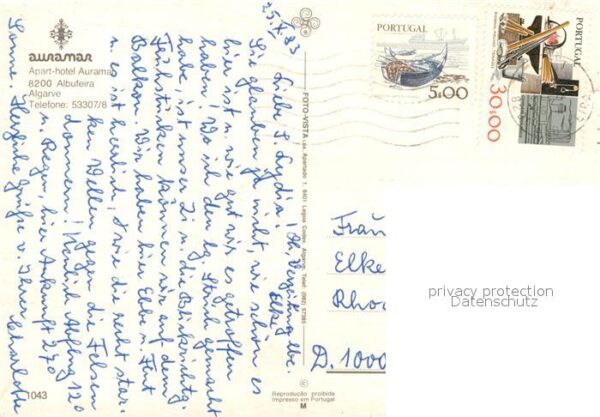 auramar
Apart-hotel Auramar
8200 Albufeira
Algarve
Telefone: 53307/8
25.X.83
Liebe S. Lydia! Ah, Verzeihung lbe. Elke!
Sie glauben ja nicht, wie schön es
hier ist u. wie gut wir es getroffen
haben! Wo ich den lg. Strich gemacht
habe, ist unser Zi u. die
Frühstücken können wir auf dem
Balkon. Wir haben hier Ebbe u. Flut
u. es ist herrlich, wie die recht star-
ken Wellen gegen die Felsen
donnern! Neulich Abflug 12°
u. Regen, hier Ankunft 27°
Sonne. Herzliche Grüße v. Ihrer Charlotte
1043
FOTO-VISTA, Lda. Apartado 1. 8401 Lagoa Codex. Algarve. Telef. (082) 57385
©
Reprodução proibida
Impresso em Portugal
M
PORTUGAL
5$00
PORTUGAL
30$00
Frau
Elke
D. 1000
privacy protection
Datenschutz